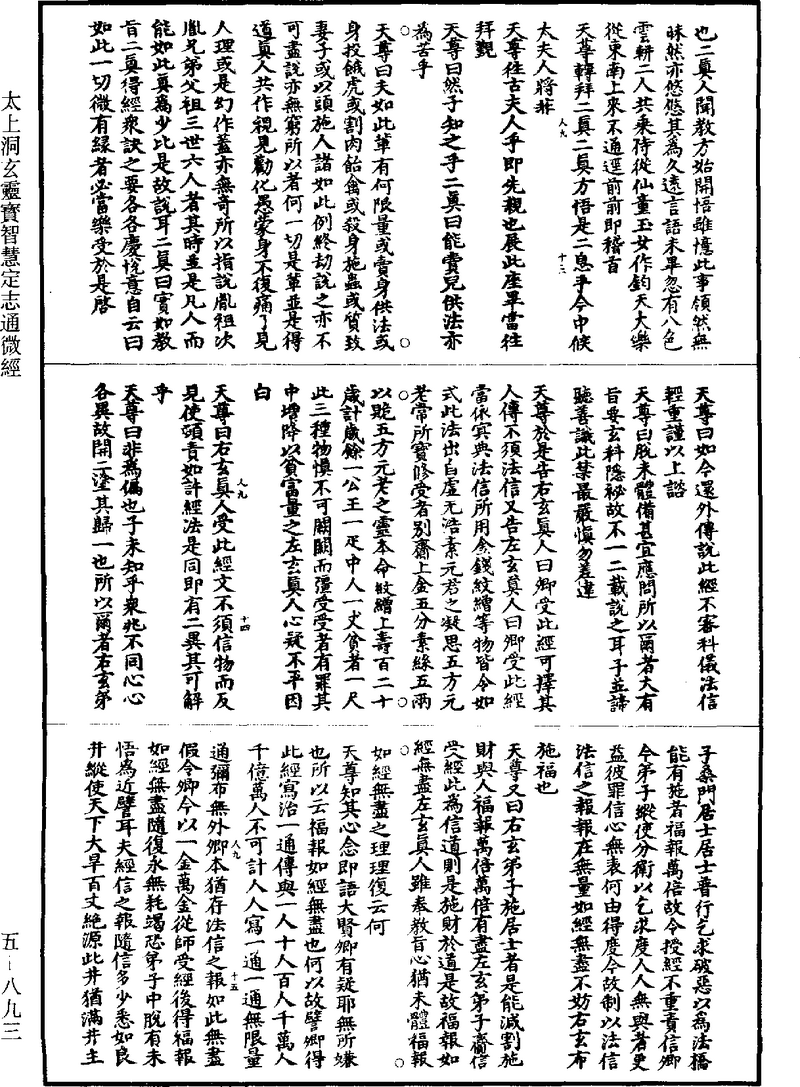 也二真人聞教方始開悟雖憶此事領然無
昧然亦悠悠其為久遠言語未畢忽有八色
雲軿二人共乘侍從仙童玉女作鈞天大樂
從東南上來不通逕前前即稽首
天尊轉拜二真二真方悟是二息乎今中候
太夫人將非
天尊往古夫人乎即先親也展此座畢當往
拜覲
天尊曰然子知之乎二真曰能賣兒供法亦
為苦乎
天尊曰夫如此輩有何限量或賣身供法或
身投餓虎或割肉飴禽或殺身施蟲或質致
妻子或以頭施人諸如此例終劫說之亦不
可盡說亦無窮所以者何一切是輩並是得
道真人共作視見勸化愚蒙身不復痛了見
人理或是幻作蓋亦無奇所以指說胤祖次
胤兄弟父祖三世六人者其時並是凡人而
能如此真為少比是故說耳二真曰實如教
旨二真得經衆訣之要各各慶悅意自云曰
如此一切微有緣者必當樂受於是啓
天尊曰如今還外傳說此經不審科儀法信
輕重謹以上諮
天尊曰脫未體備甚宜應問所以爾者大有
旨要玄科隱祕故不一二載說之耳子並諦
聽善識此禁最嚴慎勿差違
天尊於是告右玄真人曰卿受此經可擇其
人傳不須法信又告左玄真人曰卿受此經
當依冥典法信所用金錢紋繒等物皆令如
式此法出自虛无浩素元君之凝思五方元
老常所寶修受者別齋上金五分素絲五兩
以貺五方元老之靈本命紋繒上壽百二十
歲計歲餘一公王一疋中人一丈貧者一尺
此三種物慎不可闕闕而彊受受者有罪其
中增降以貧富量之左玄真人心疑不平因
白
天尊曰右玄真人受此經文不須信物而反
見使頓責如許經法是同即有二異其可解
乎
天尊曰非為偏也子未知乎衆兆不同心心
各異故開二塗其歸一也所以爾者右玄弟
子桑門居士居士普行乞求破惡以為法橋
能有施者福報萬倍故令授經不重責信卿
今弟子縱使分衛以乞求度人人無與者更
益彼罪信心無表何由得度今故制以法信
法信之報報在無量如經無盡不妨右玄布
施福也
天尊又曰右玄弟子施居士者是能減割施
財與人福報萬倍萬倍有盡左玄弟子齎信
受經此為信道則是施財於道是故福報如
經無盡左玄真人雖奉教旨心猶未體福報
如經無盡之理理復云何
天尊知其心念即語大賢卿有疑耶無所嫌
也所以云福報如經無盡也何以故譬卿得
此經寫治一通傳與一人十人百人千萬人
千億萬人不可計人人寫一通一通無限量
通彌布無外卿本猶存法信之報如此無盡
假令卿今以一金萬金從師受經後得福報
如經無盡隨復永無耗竭恐弟子中脫有未
悟為近譬耳夫經信之報隨信多少悉如良
井縱使天下大旱百丈絕源此井猶滿井主
太上洞玄靈寶智慧定志通微經
五-八九三
人九
十三
人九
十四
人九
十五